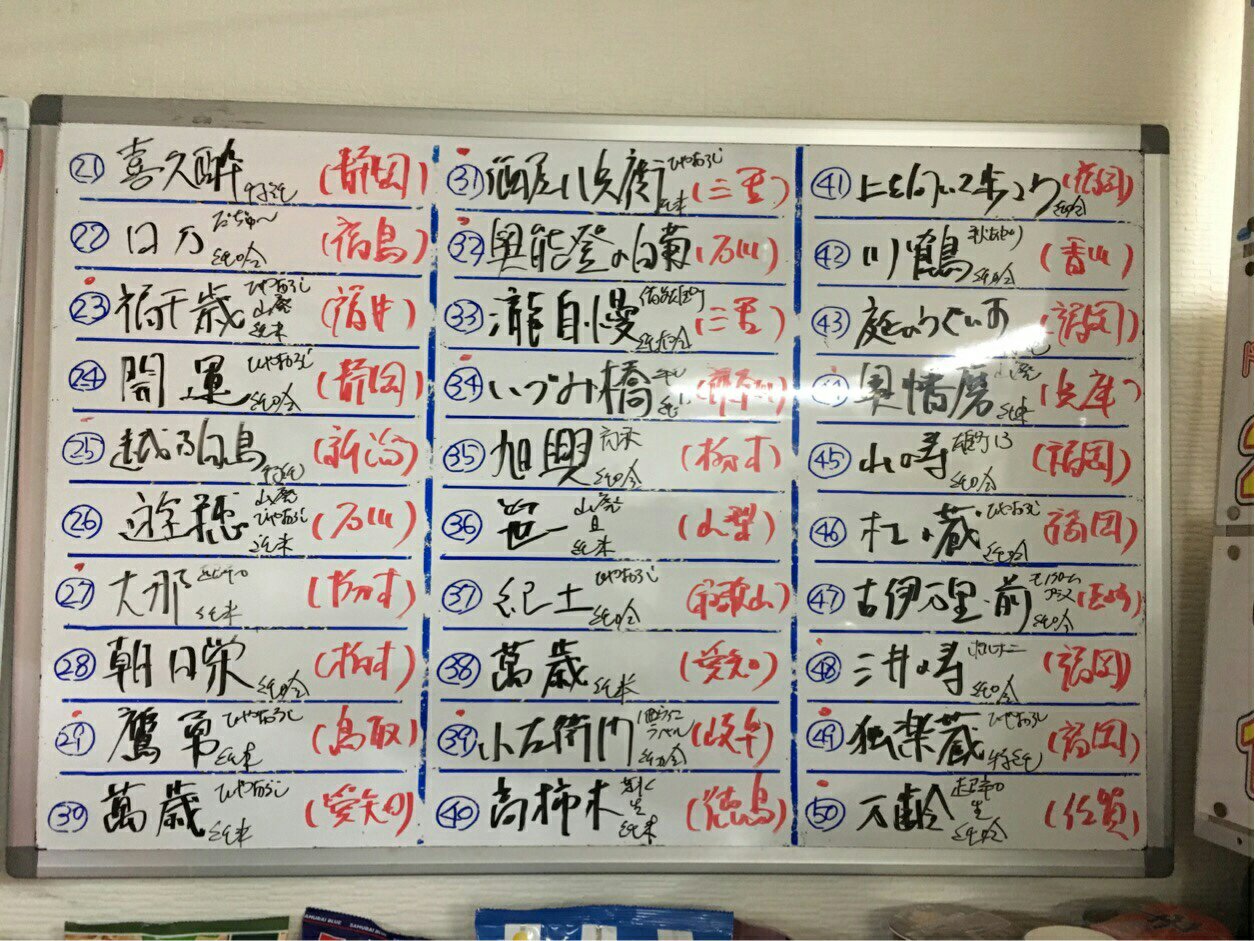 ㉑ 喜久酔 (静岡)
㉒ (福島)
㉓ 福千歳 ひやおろし 山廃 純米 (福井)
㉔ 開運 ひやおろし 純吟 (静岡)
㉕ 越乃白鳥 特純 (新潟)
㉖ 遊穂 山廃 ひやおろし 純米 (石川)
㉗ 大那 純米 (栃木)
㉘ 朝日栄 純吟 (栃木)
㉙ 鷹勇 ひやおろし 純米 (鳥取)
㉚ 萬歳 ひやおろし 純米 (愛知)
㉛ 酒屋八兵衛 ひやおろし 純米 (三重)
㉜ 奥能登の白菊 (石川)
㉝ 瀧自慢 (三重)
㉞ いづみ橋
㉟ 旭興 純吟 (栃木)
㊱ 笹一 山廃 純米 (山梨)
㊲ 紀土 ひやおろし 純吟 (和歌山)
㊳ 萬歳 純米 (愛知)
㊴ 小左衛門 純吟 (岐阜)
㊵ 高柿木 生 純米 (徳島)
㊶ 純吟
㊷ 川鶴 純吟 (香川)
㊸ 庭のうぐいす (福岡)
奥播磨 山廃 純米 (兵庫)
㊺ 山の寿 純吟 (福岡)
㊻ 杜の蔵 ひやおろし 純吟 (福岡)
㊼ 古伊万里・前 純吟
㊽ 三井の寿 純吟 (福岡)
㊾ 独楽蔵 ひやおろし 特純 (福岡)
㊿ 万齢 生 純吟 (佐賀)
SAMURAI BLUE SAMURAI BLUE